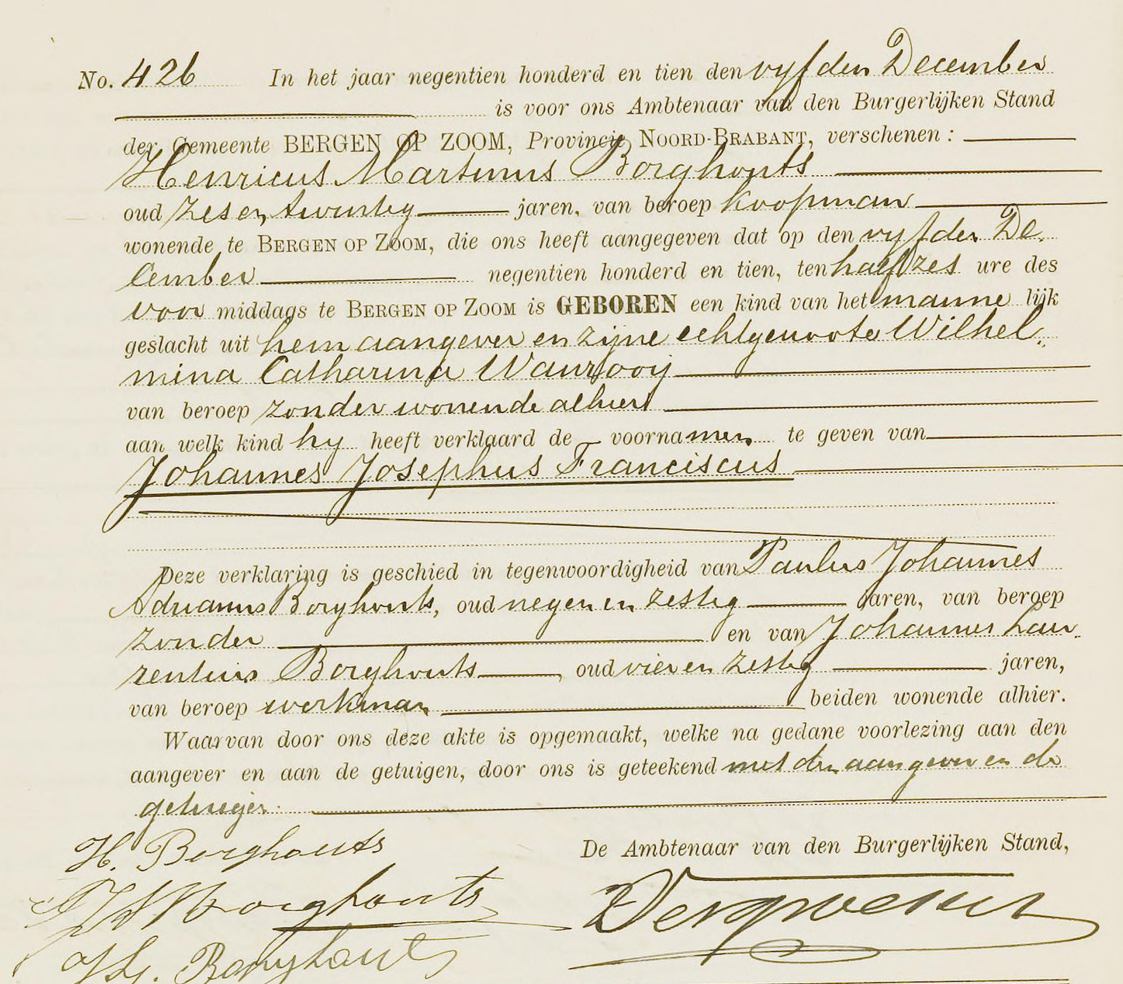 No. 426 In het jaar negentien honderd en tien den vyfden December
is voor ons Ambtenaar van den Burgerlijken Stand
der Gemeente BERGEN OP ZOOM, Provincie NOORD-BRABANT, verschenen:
Henricus Martinus Borghouts
oud zesentwintig jaren, van beroep koopman
wonende te BERGEN OP ZOOM, die ons heeft aangegeven dat op den vyfden De-
cember negentien honderd en tien, ten half zes ure des
voor middags te BERGEN OP ZOOM is GEBOREN een kind van het manne lijk
geslacht uit hem aangever en zijne echtgenoote Wilhel-
mina Catharina
van beroep zonder wonende alhier
aan welk kind hy heeft verklaard de voornamen te geven van
Johannes Josephus Franciscus
Deze verklaring is geschied in tegenwoordigheid van Paulus Johannes
Adrianus Borghouts, oud negen en zestig jaren, van beroep
zonder en van Johannes Lau-
rentius Borghouts, oud vier en zestig jaren,
van beroep werkman beiden wonende alhier.
Waarvan door ons deze akte is opgemaakt, welke na gedane voorlezing aan den
aangever en aan de getuigen, door ons is geteekend met den aangever en de
getuigen.
H. Borghouts
De Ambtenaar van den Burgerlijken Stand,
Borghouts
Borghouts